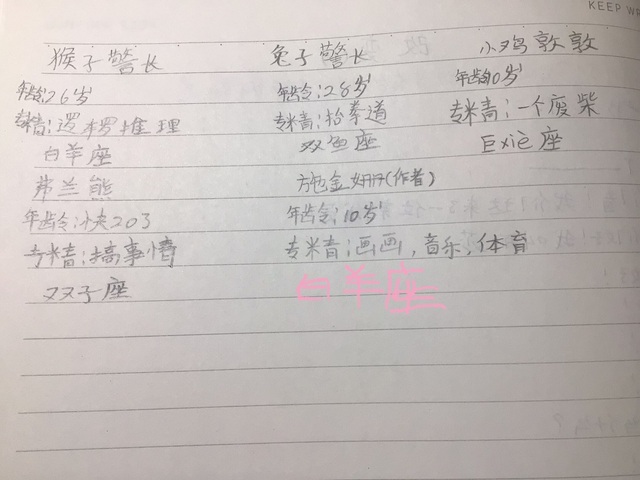 KEEP WA
猴子警长 兔子警长 小鸡敦敦
年龄:26岁 年龄:28岁 年龄10岁
专精:逻椤推理 专精:抬拳道 专精:一个废柴
白羊座 双鱼座 巨xiè座
弗兰熊 金姗姗(作者)
年龄:小夫203 年龄:10岁
专精:搞事情 专精:画画,音乐,体育
双子座 白羊座